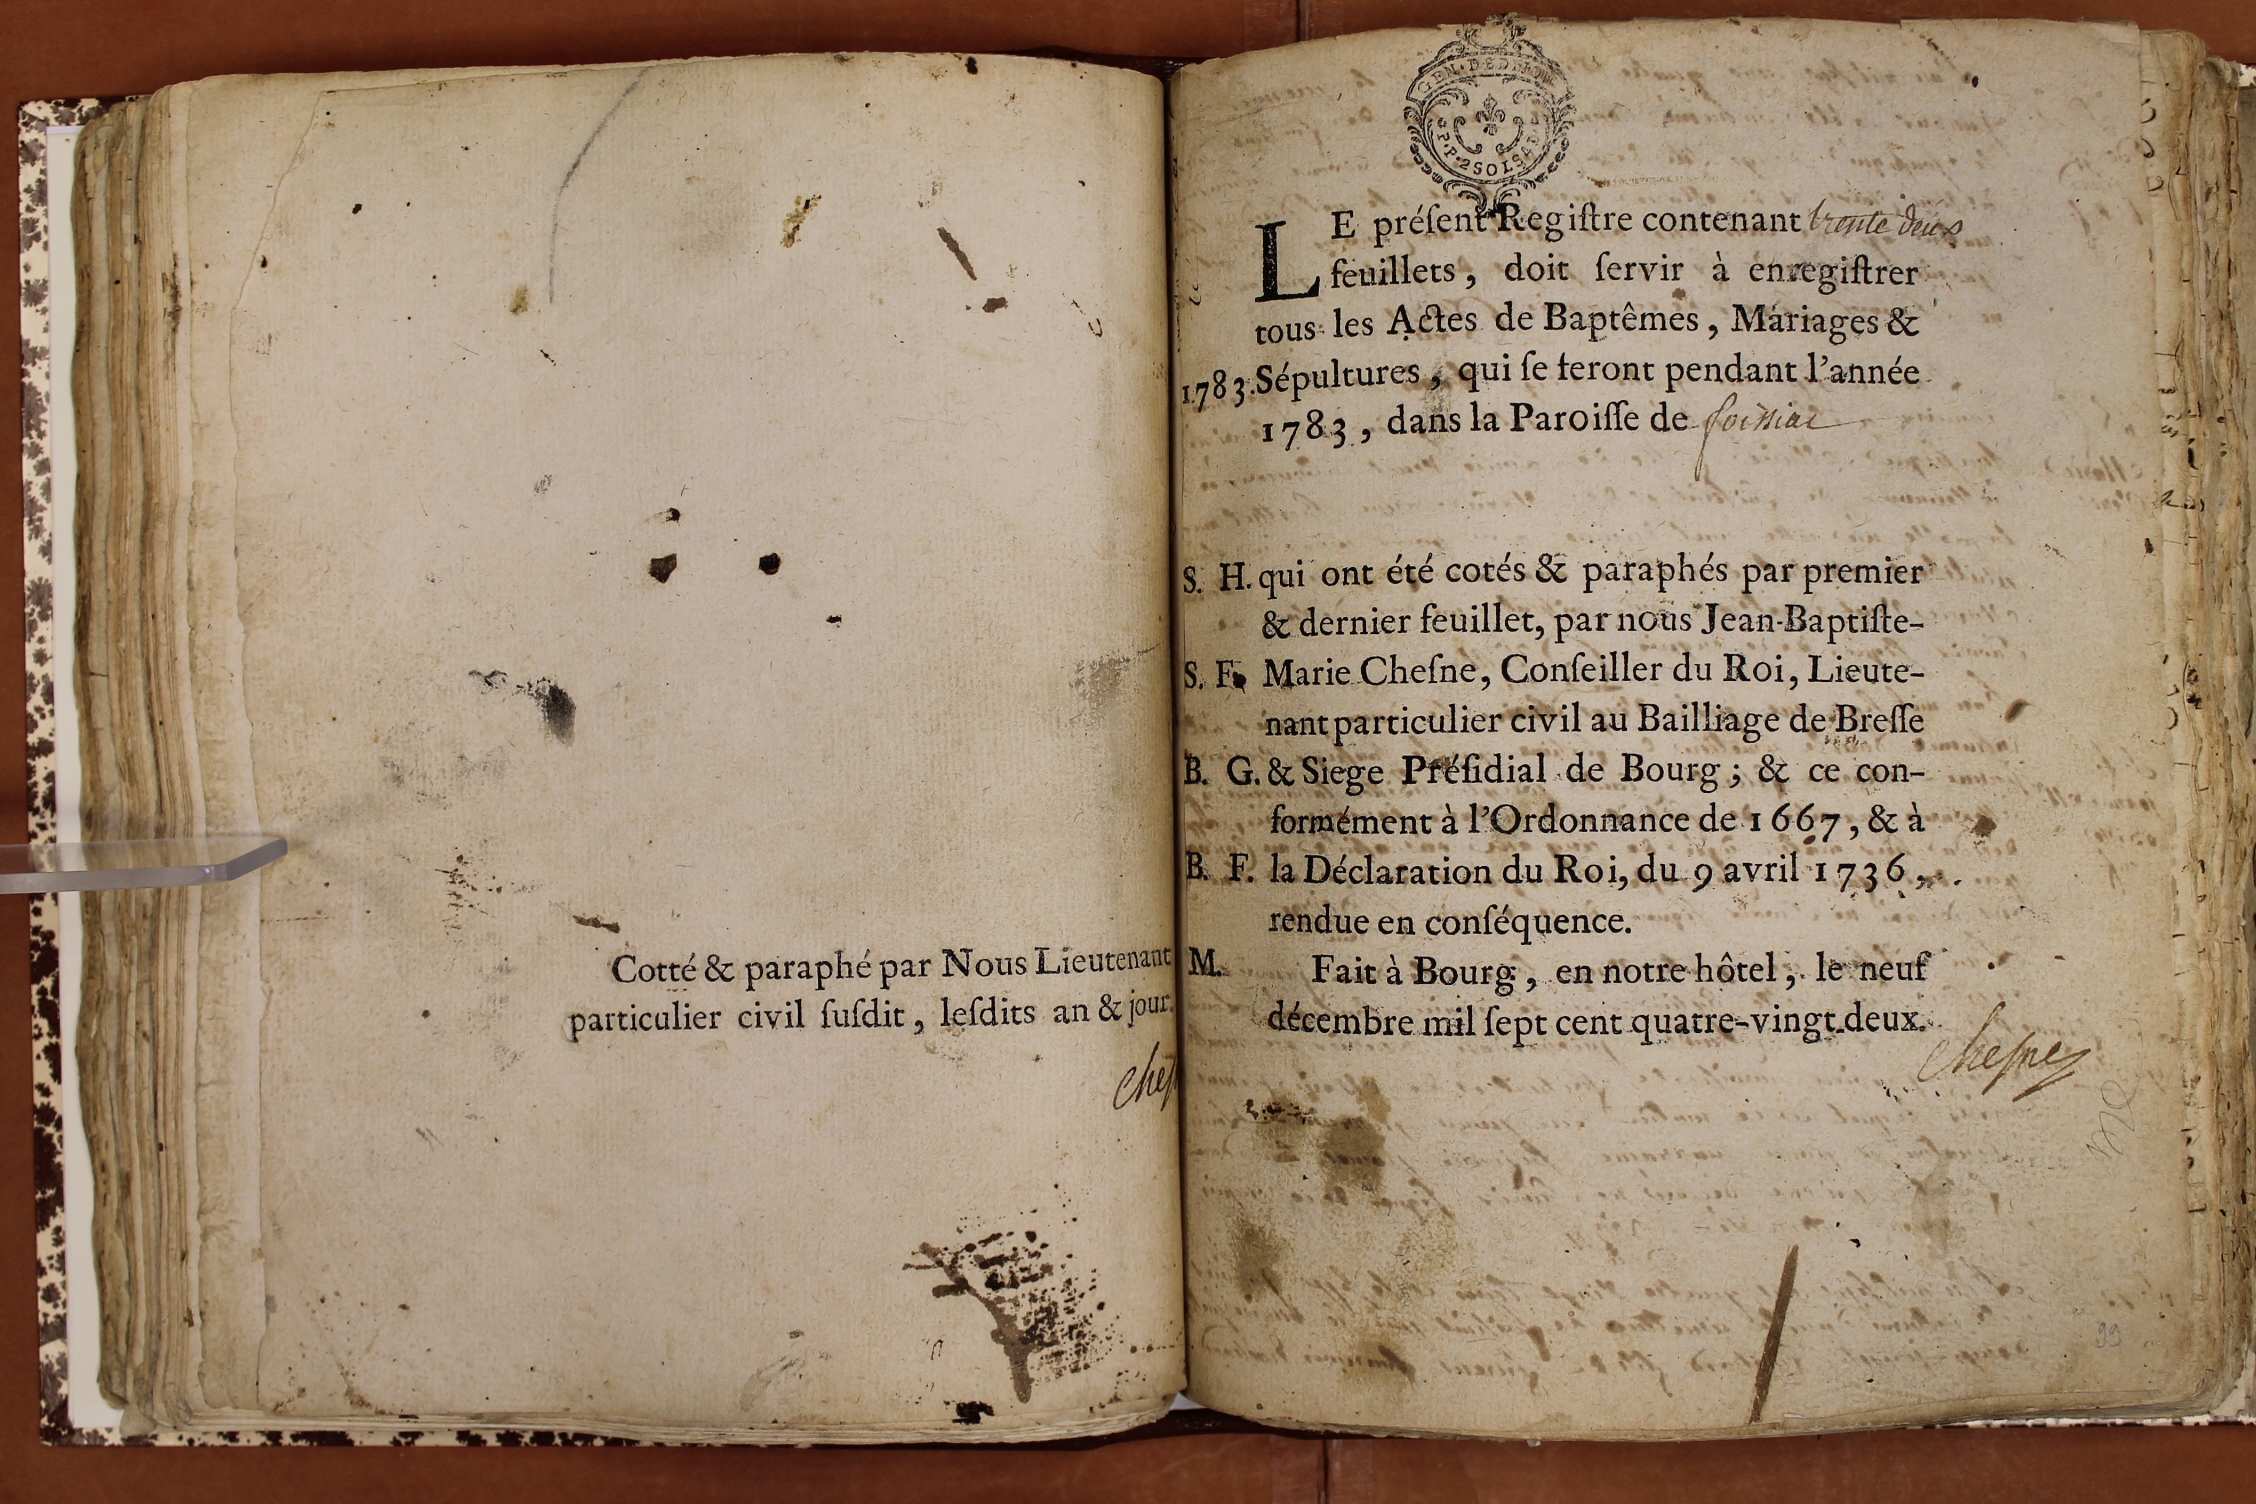 Cotté & paraphé par Nous Lieutenant
particulier civil ſuſdit, leſdits an & jour.
Cheſ
GEN. DE DIJON
P. P. 2 SOLS
LE préſent Regiſtre contenant trente deux
feuillets, doit ſervir à enregiſtrer
tous les Actes de Baptêmes, Mariages &
1783. Sépultures, qui ſe feront pendant l'année
1783, dans la Paroiſſe de foissiat
S. H. qui ont été cotés & paraphés par premier
& dernier feuillet, par nous Jean-Baptiſte-
S. F. Marie Cheſne, Conſeiller du Roi, Lieute-
nant particulier civil au Bailliage de Breſſe
B. G. & Siege Préſidial de Bourg; & ce con-
formément à l'Ordonnance de 1667, & à
B. F. la Déclaration du Roi, du 9 avril 1736,
rendue en conſéquence.
M. Fait à Bourg, en notre hôtel, le neuf
décembre mil ſept cent quatre-vingt-deux.
Cheſne
99